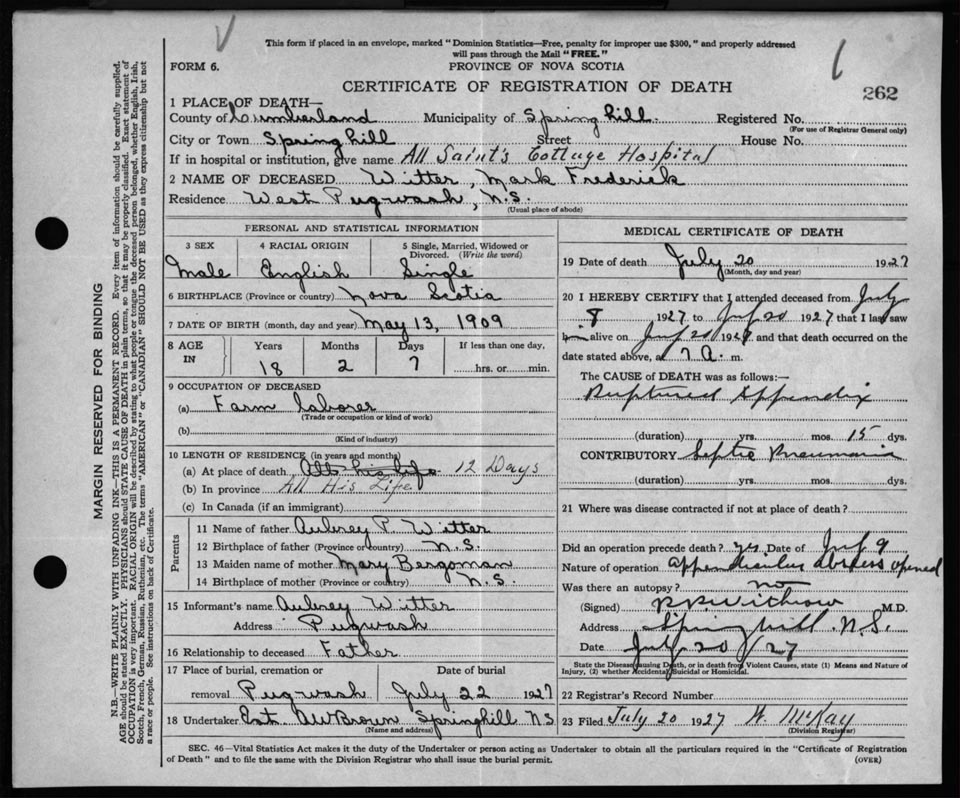 This form if placed in an envelope, marked "Dominion Statistics—Free, penalty for improper use $300," and properly addressed
will pass through the Mail "FREE."
FORM 6.
PROVINCE OF NOVA SCOTIA
CERTIFICATE OF REGISTRATION OF DEATH
262
1 PLACE OF DEATH—
County of Cumberland Municipality of Spring hill Registered No.
(For use of Registrar General only)
City or Town Spring hill Street House No.
If in hospital or institution, give name All Saint's Cottage Hospital
2 NAME OF DECEASED Witter, Mark Frederick
Residence West Pugwash, N.S.
(Usual place of abode)
PERSONAL AND STATISTICAL INFORMATION
3 SEX 4 RACIAL ORIGIN 5 Single, Married, Widowed or
Divorced. (Write the word)
Male English Single
6 BIRTHPLACE (Province or country) Nova Scotia
7 DATE OF BIRTH (month, day and year) May 13, 1909
8 AGE IN Years Months Days If less than one day,
18 2 7 hrs. or min.
9 OCCUPATION OF DECEASED
(a) Farm laborer
(Trade or occupation or kind of work)
(b)
(Kind of industry)
10 LENGTH OF RESIDENCE (in years and months)
(a) At place of death All his life 12 Days
(b) In province All His Life
(c) In Canada (if an immigrant)
Parents
11 Name of father Aubrey P. Witter
12 Birthplace of father (Province or country) N.S.
13 Maiden name of mother Mary Bergoman
14 Birthplace of mother (Province or country) N.S.
15 Informant's name Aubrey Witter
Address Pugwash
16 Relationship to deceased Father
17 Place of burial, cremation or Date of burial
removal Pugwash July 22 1927
18 Undertaker Est. AW Brown Springhill N.S
(Name and address)
MEDICAL CERTIFICATE OF DEATH
19 Date of death July 20 1927
(Month, day and year)
20 I HEREBY CERTIFY that I attended deceased from July
8 1927 to July 20 1927 that I last saw
him alive on July 20 1927 and that death occurred on the
date stated above, at 7 A. m.
The CAUSE of DEATH was as follows:—
Ruptured Appendix
(duration) yrs. mos. 15 dys.
CONTRIBUTORY Septic Pneumonia
(duration) yrs. mos. dys.
21 Where was disease contracted if not at place of death?
Did an operation precede death? yes Date of July 9
Nature of operation appendicular abscess opened
Was there an autopsy? no
(Signed) R P Withrow M.D.
Address Springhill N.S.
Date July 20 /27
State the Disease causing Death, or in death from Violent Causes, state (1) Means and Nature of
Injury, (2) whether Accidental, Suicidal or Homicidal.
22 Registrar's Record Number
23 Filed July 20 1927 W. McKay
(Division Registrar)
SEC. 46—Vital Statistics Act makes it the duty of the Undertaker or person acting as Undertaker to obtain all the particulars required in the "Certificate of Registration
of Death" and to file the same with the Division Registrar who shall issue the burial permit.
(OVER)
MARGIN RESERVED FOR BINDING
N.B.—WRITE PLAINLY WITH UNFADING INK—THIS IS A PERMANENT RECORD. Every item of information should be carefully supplied.
AGE should be stated EXACTLY. PHYSICIANS should STATE CAUSE OF DEATH in plain terms, so that it may be properly classified. Exact statement of
OCCUPATION is very important. RACIAL ORIGIN will be described by stating to what people or tongue the deceased person belonged, whether English, Irish,
Scotch, French, German, Russian, Ruthenian, etc. The terms "AMERICAN" or "CANADIAN" SHOULD NOT BE USED as they express citizenship but not
a race or people. See instructions on back of Certificate.